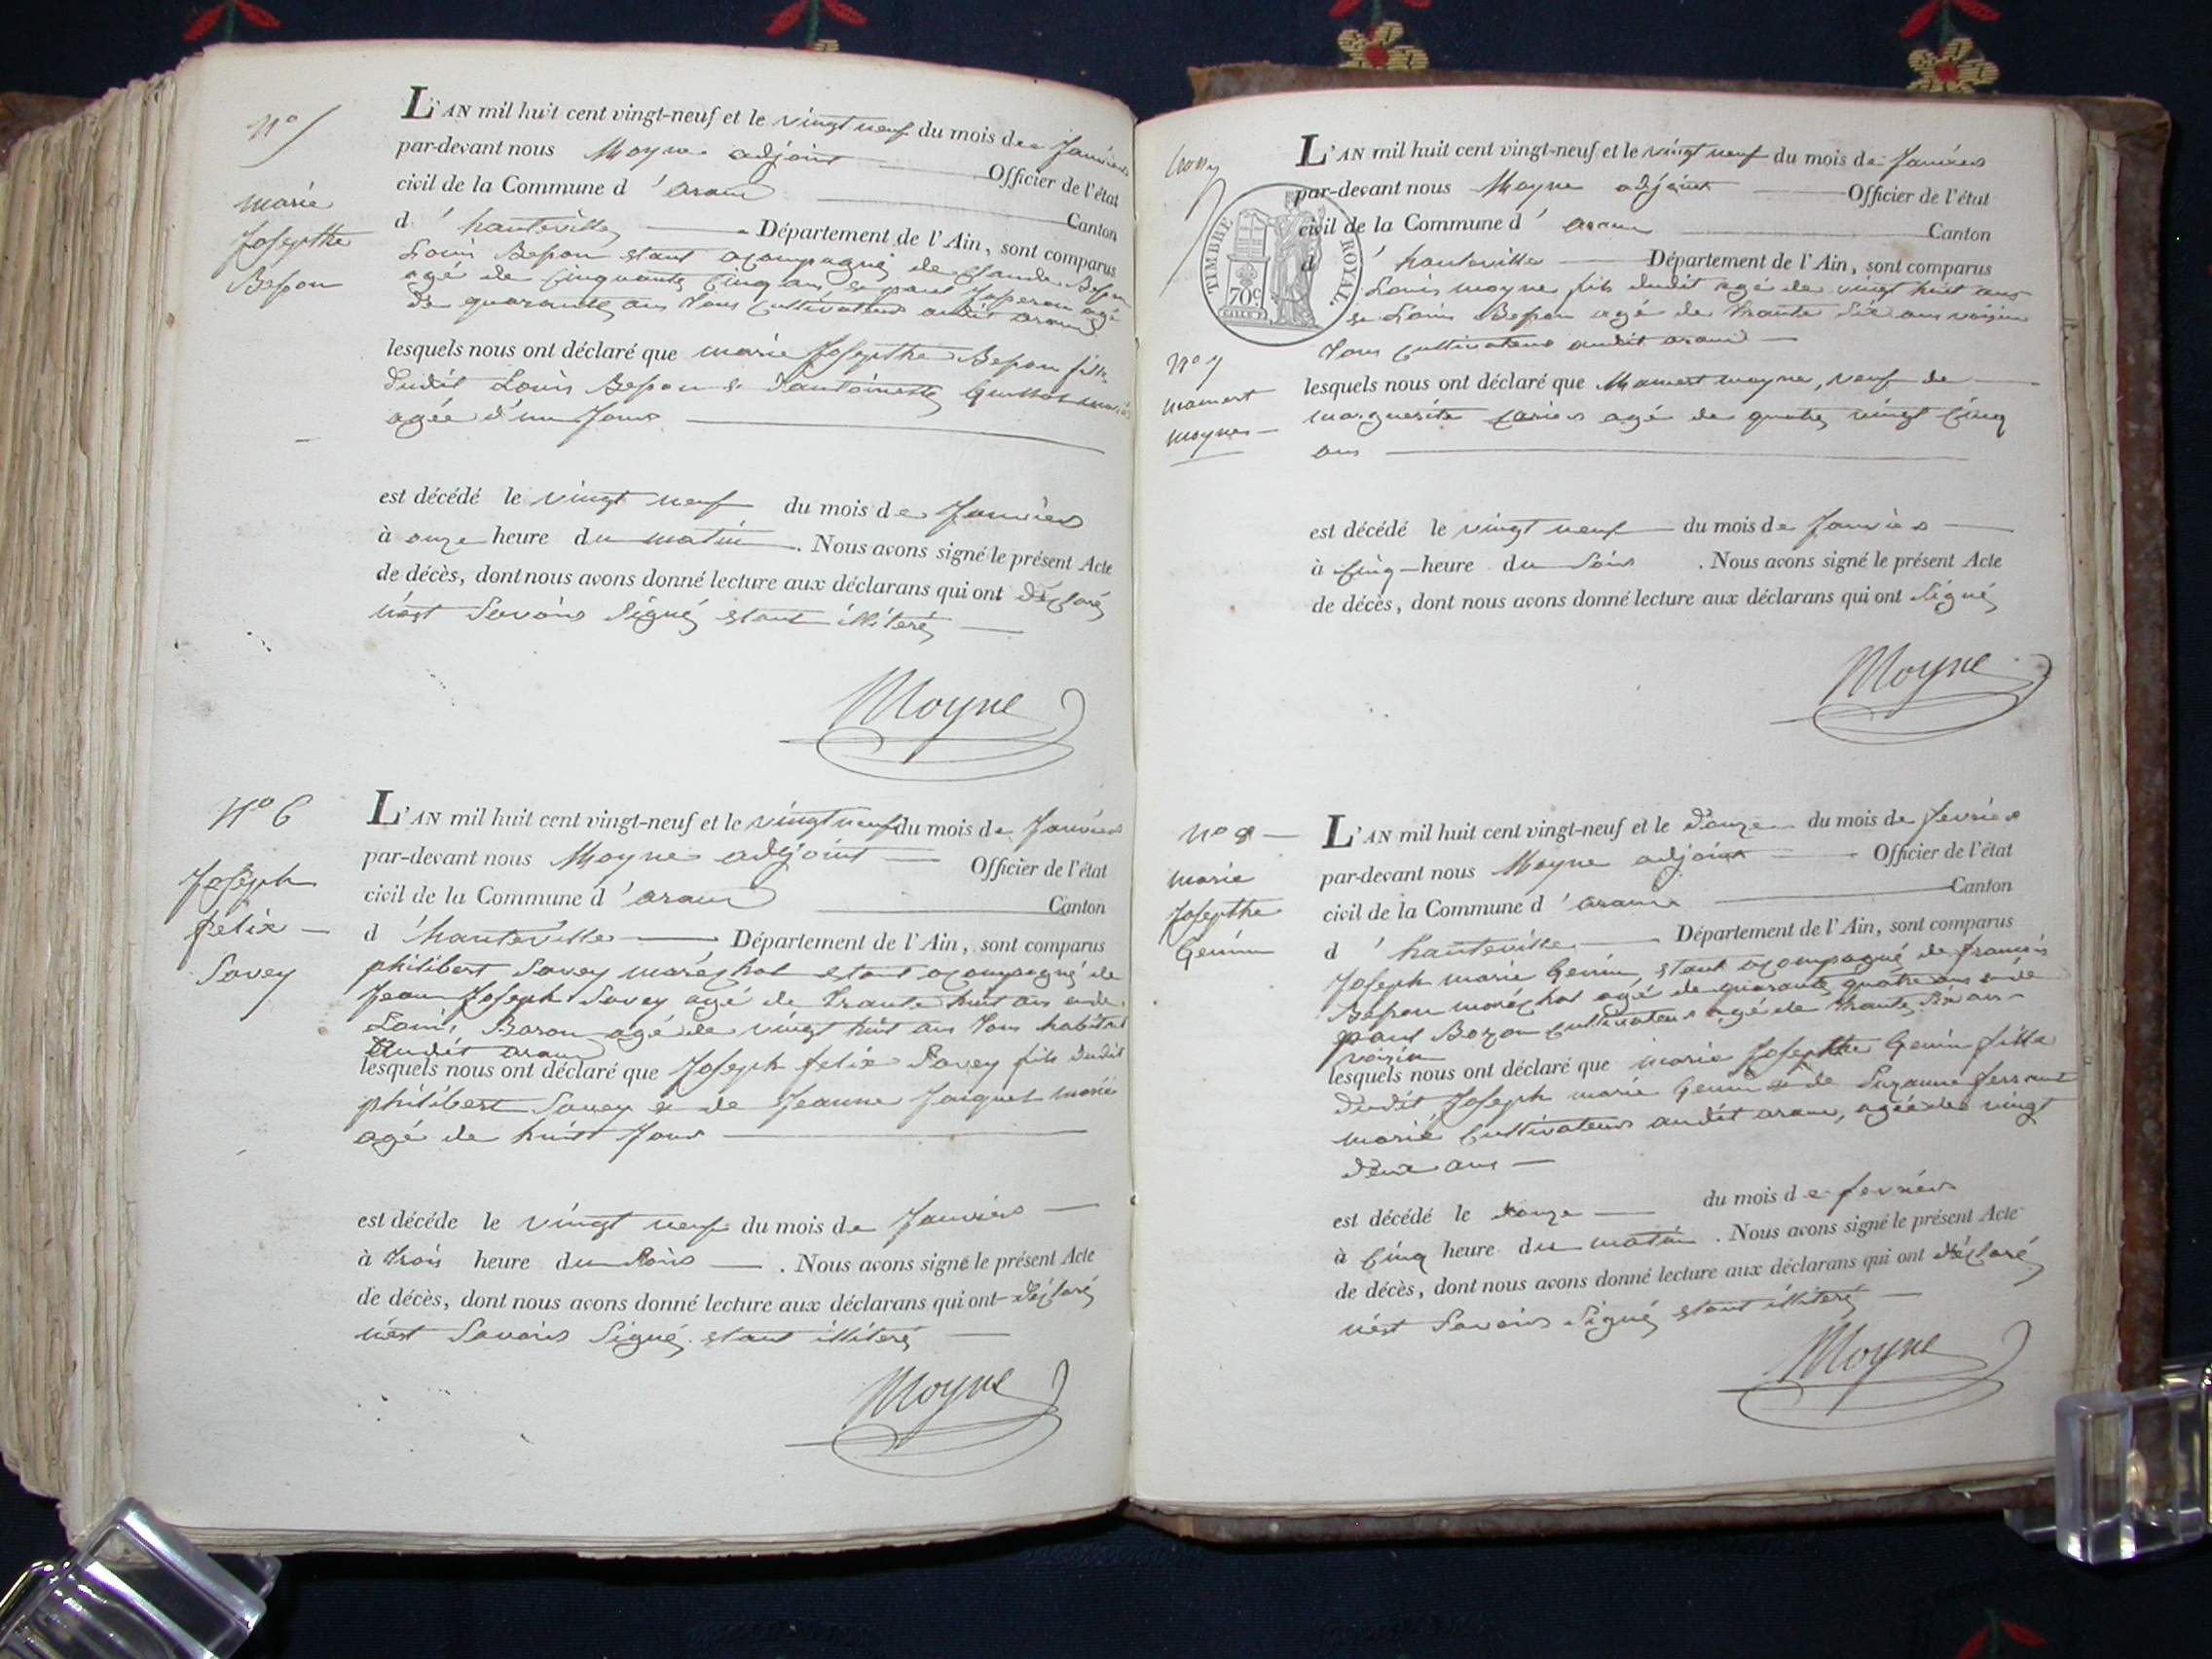 N° 5
marie
Josepthe
Besson
L'AN mil huit cent vingt-neuf et le vingt neuf du mois de Janvier
par-devant nous Moyne adjoint Officier de l'état
civil de la Commune d'aranc Canton
d'hauteville Département de l'Ain, sont comparus
Louis Besson etant acompagné de Claude Besson
agé de Cinquante Cinq ans, et paul agé
de quarante ans tous Cultivateurs audit aranc
lesquels nous ont déclaré que marie Josepthe Besson fille
dudit Louis Besson et d'antoinette mariés
agée d'un Jour
est décédé le vingt neuf du mois de Janvier
à onze heure du matin. Nous avons signé le présent Acte
de décès, dont nous avons donné lecture aux déclarans qui ont déclaré
n'est Savoir Signé etant illiteré
Moyne
N° 6
Joseph
félix
Savey
L'AN mil huit cent vingt-neuf et le vingt neuf du mois de Janvier
par-devant nous Moyne adjoint Officier de l'état
civil de la Commune d'aranc Canton
d'hauteville Département de l'Ain, sont comparus
philibert Savey maréchal etant acompagné de
Jean Joseph Savey agé de trante huit ans et de
Louis Baron agé de vingt huit ans tous habitant
audit aranc
lesquels nous ont déclaré que Joseph felix Savey fils dudit
philibert Savey et de Jeanne Jaiquet marié
agé de huit Jour
est décéde le vingt neuf du mois de Janvier
à trois heure du Soir. Nous avons signé le présent Acte
de décès, dont nous avons donné lecture aux déclarans qui ont déclaré
n'est Savoir Signé etant illiteré
Moyne
TIMBRE ROYAL.
70c
N° 7
mamert
moyne
L'AN mil huit cent vingt-neuf et le vingt neuf du mois de Janvier
par-devant nous Moyne adjoint Officier de l'état
civil de la Commune d'aranc Canton
d'hauteville Département de l'Ain, sont comparus
Louis moyne fils dudit agé de vingt huit ans
et Louis Besson agé de trante Six ans voisin
tous Cultivateurs audit aranc
lesquels nous ont déclaré que Mamert moyne, veuf de
marguerite agé de quatre vingt Cinq
ans
est décédé le vingt neuf du mois de Janvier
à Cinq heure du Soir. Nous avons signé le présent Acte
de décès, dont nous avons donné lecture aux déclarans qui ont Signé
Moyne
N° 8
marie
Josepthe
Genin
L'AN mil huit cent vingt-neuf et le douze du mois de fevrier
par-devant nous Moyne adjoint Officier de l'état
civil de la Commune d'aranc Canton
d'hauteville Département de l'Ain, sont comparus
Joseph marie Genin, etant acompagné de francois
Besson maréchal agé de quarante quatre ans et de
paul Bozon Cultivateur agé de trante Six ans
voisin
lesquels nous ont déclaré que marie Josepthe Genin fille
dudit Joseph marie Genin et de Suzanne ferrand
marié Cultivateurs audit aranc, agée de vingt
deux ans
est décédé le douze du mois de fevrier
à Cinq heure du matin. Nous avons signé le présent Acte
de décès, dont nous avons donné lecture aux déclarans qui ont déclaré
n'est Savoir Signé etant illiteré
Moyne